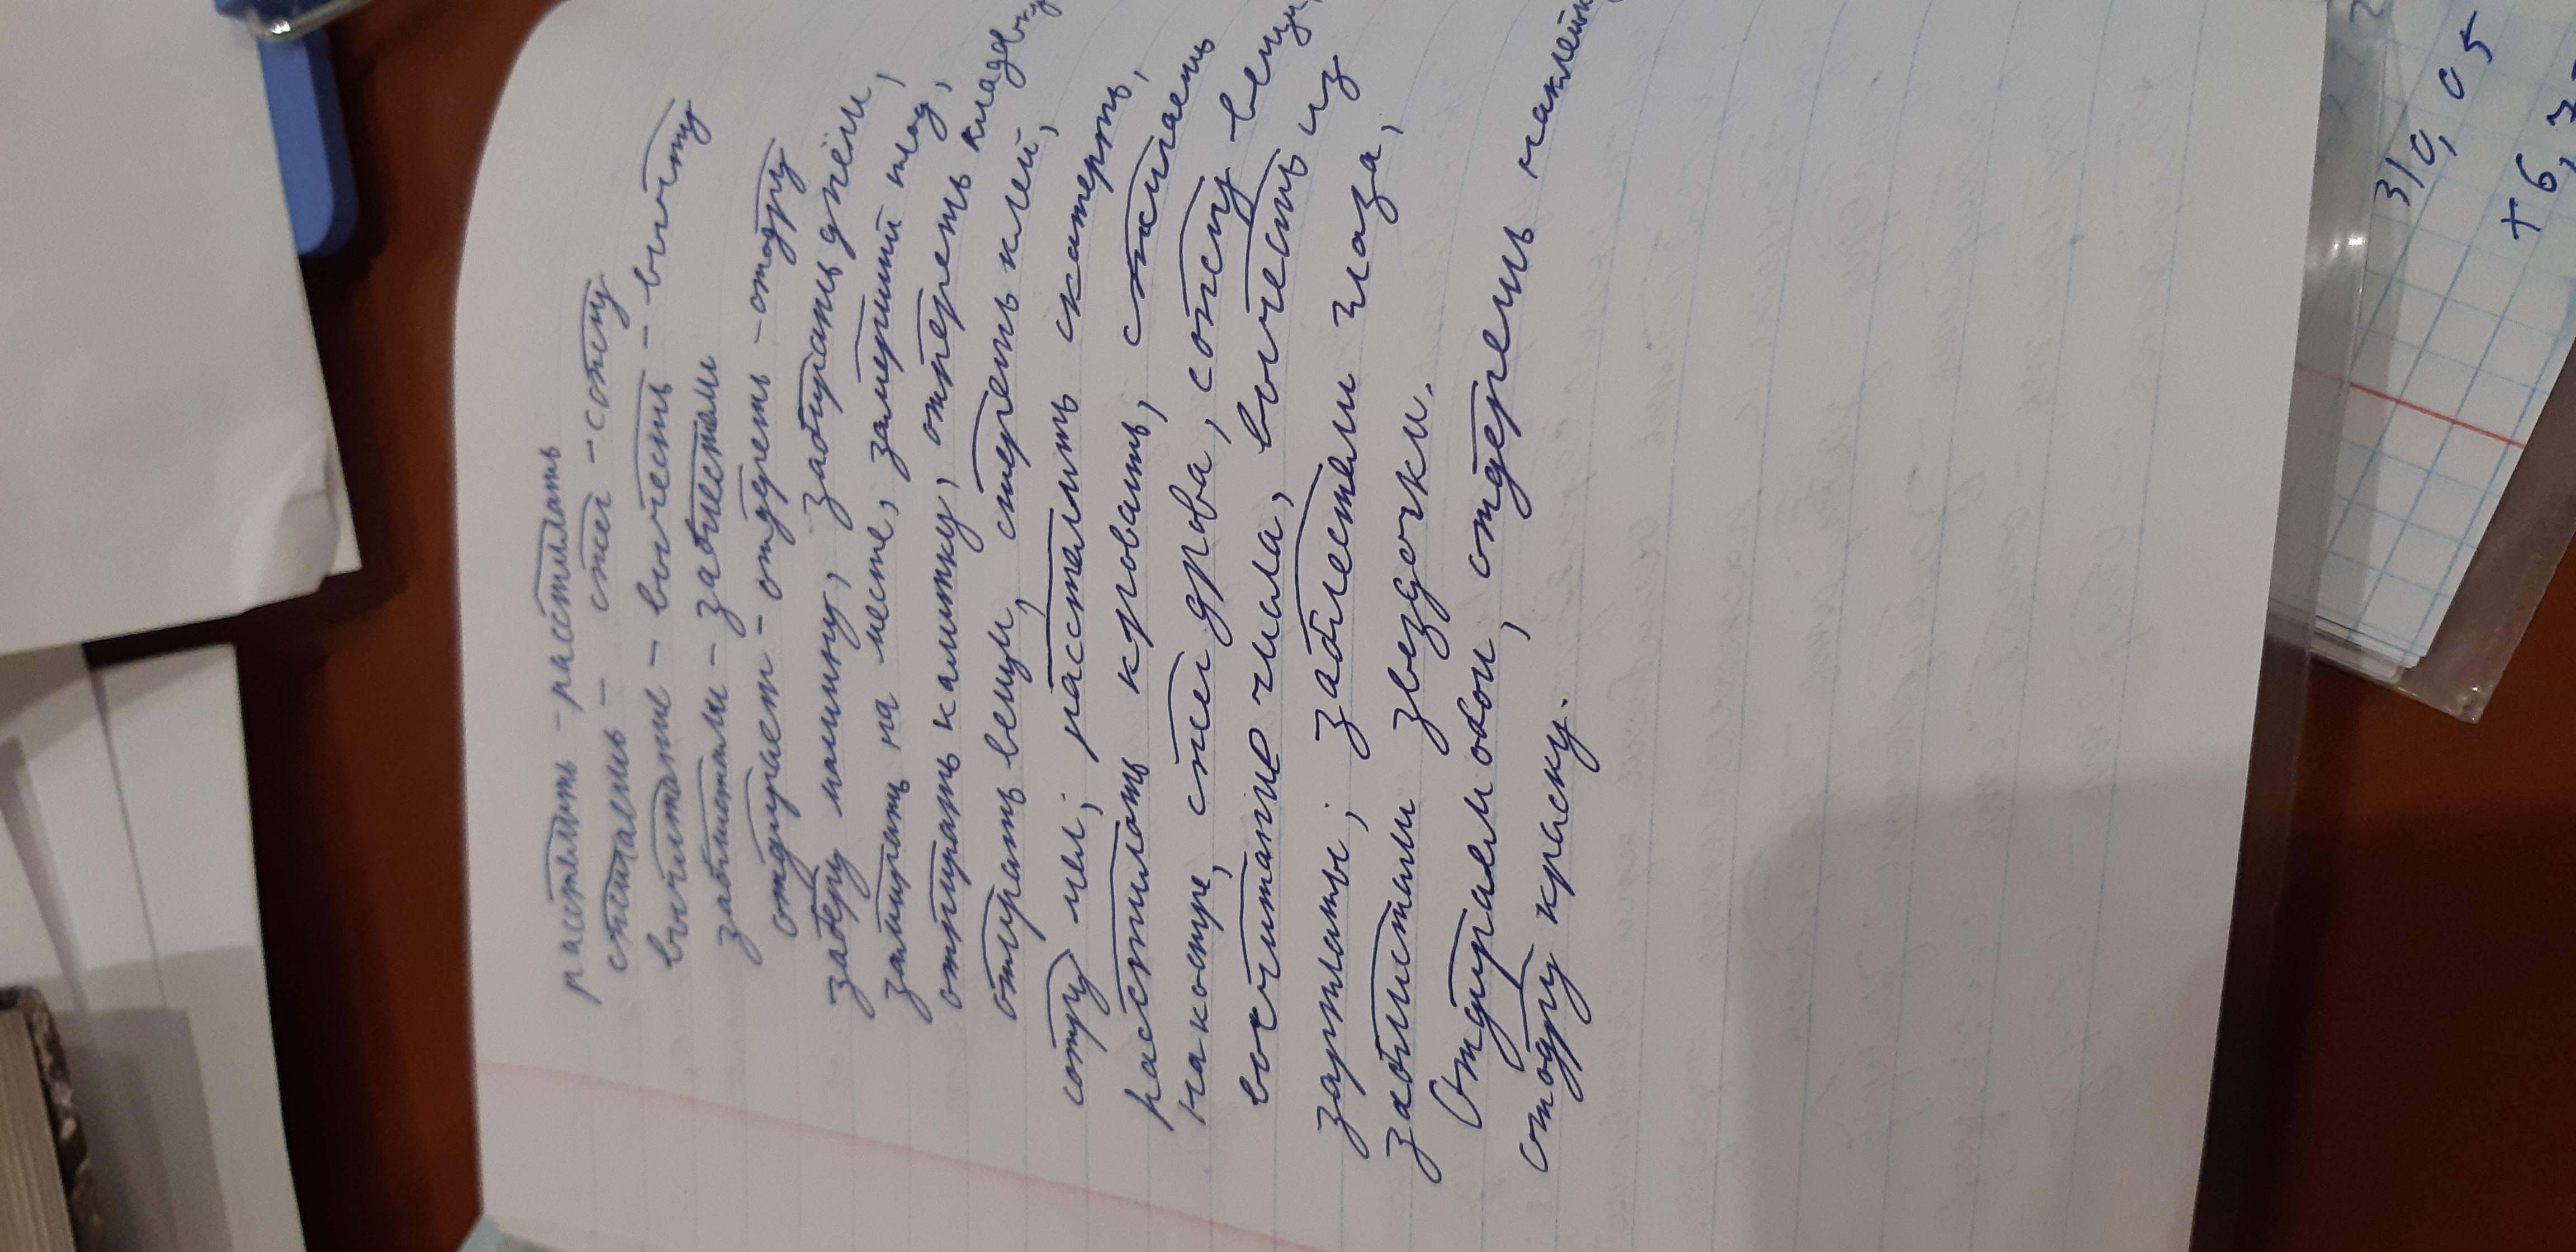 расстелить - расстилать
стигаешь - сжег - сожгу
вычитание - вычесть - вычту
заблистали - заблестели
отдирает - отдерешь - отдеру
заберу машину, забирать джем,
замирать на месте, замерший плод,
отпирать калитку, отпереть кладовку
отирать вещи, стереть клей,
сотру мел; расстелить скатерть,
расстилать кровать, сжигаешь
на костре, сжег дрова, сожгу вещи,
вычитание числа, вычесть из
зарплаты; заблестели глаза,
заблистали звездочки.
Отдираем обои, отдерешь наклейку
отодру краску.
310,05
+ 6,7